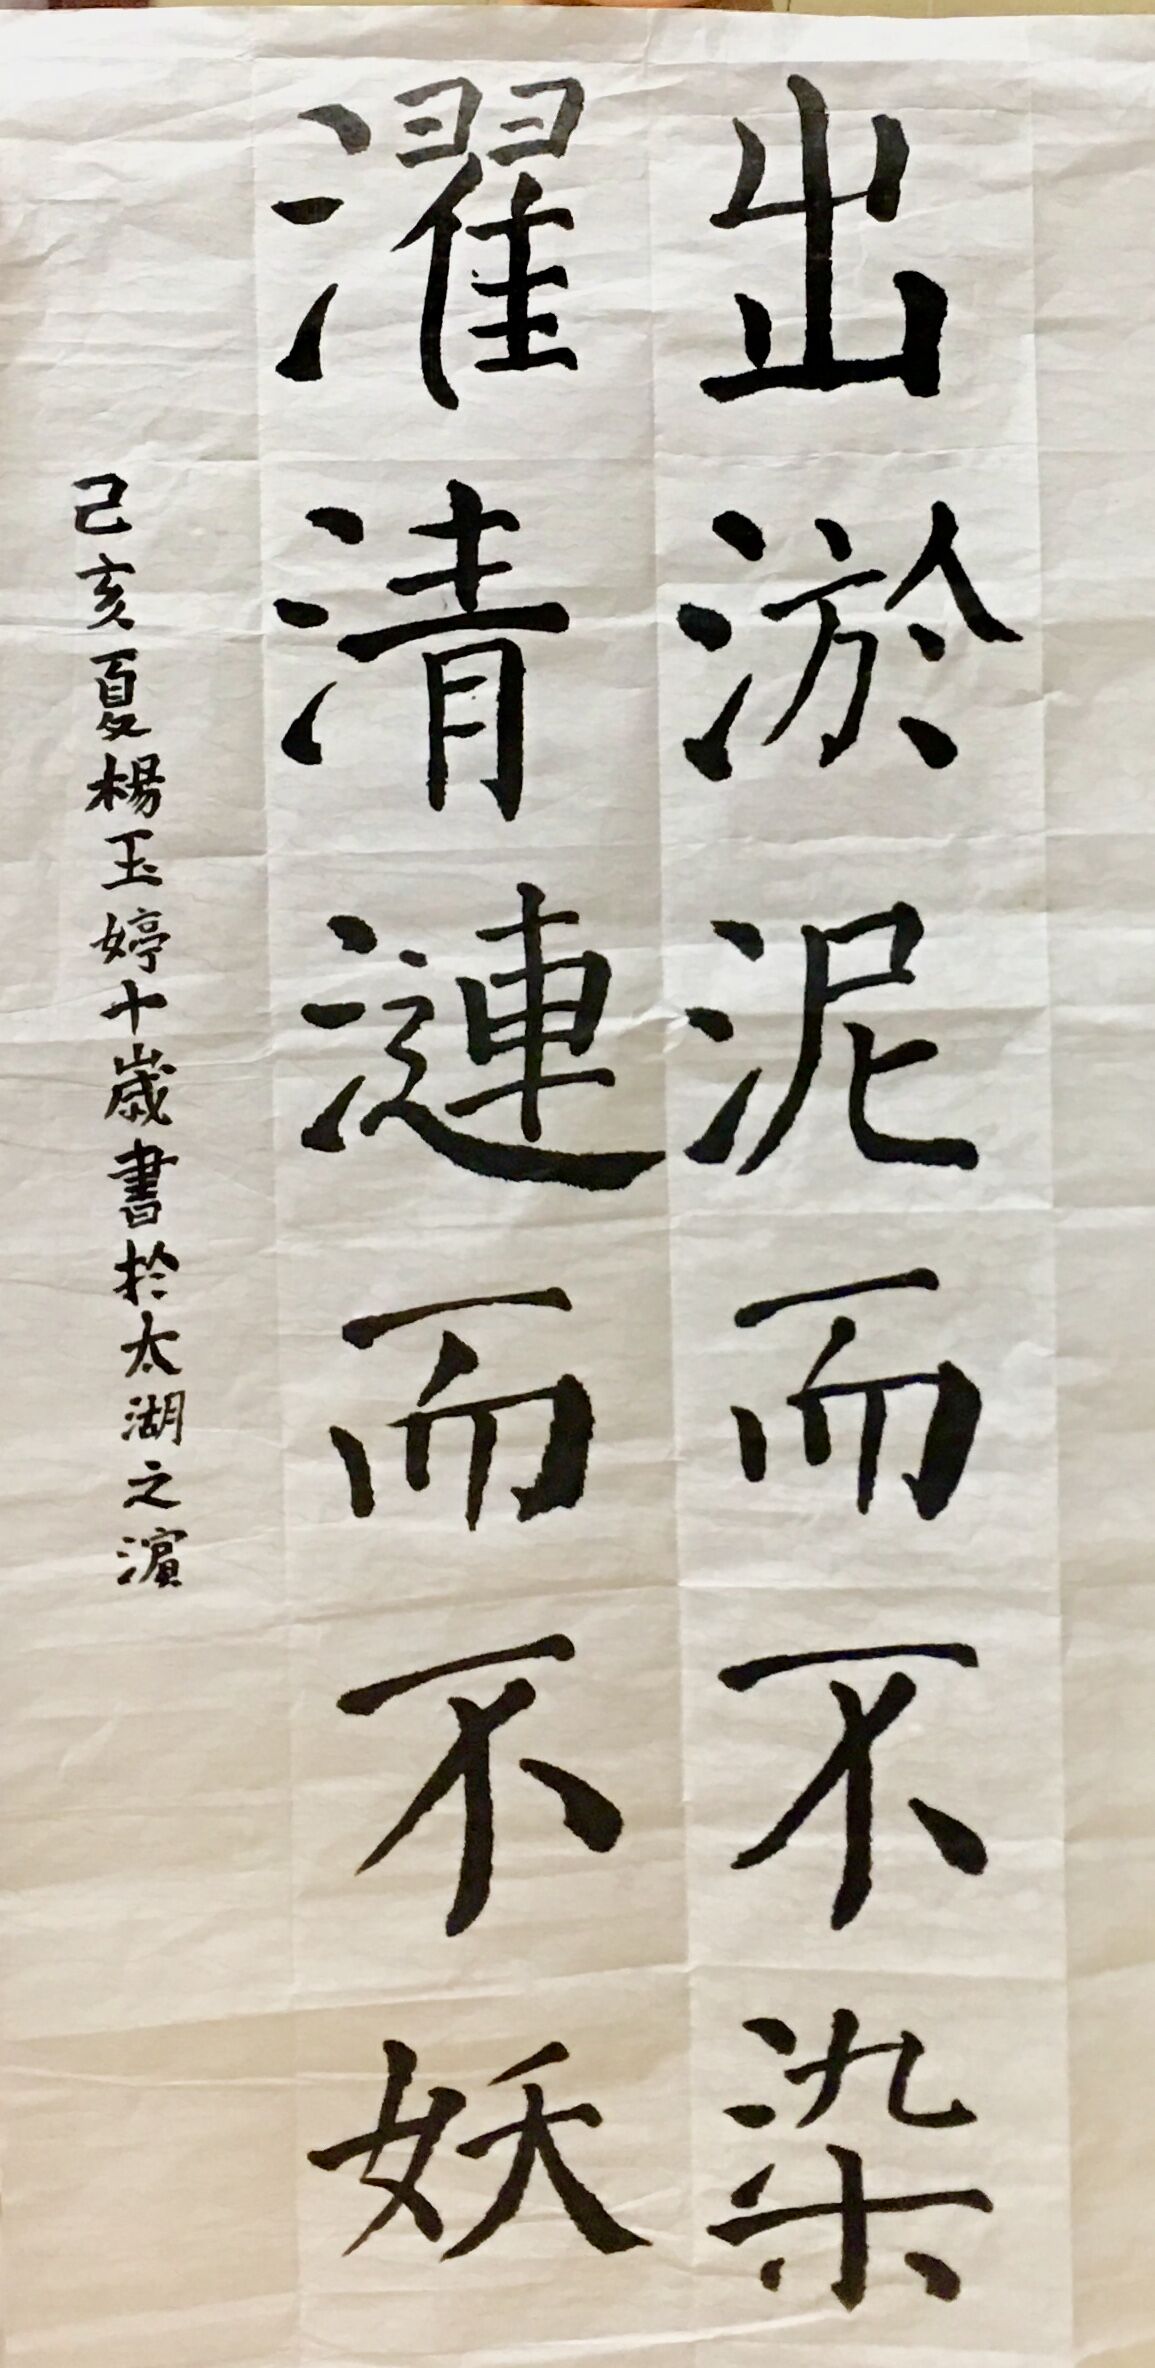 出淤泥而不染
濯清漣而不妖
己亥夏楊玉婷十歲書於太湖之濱